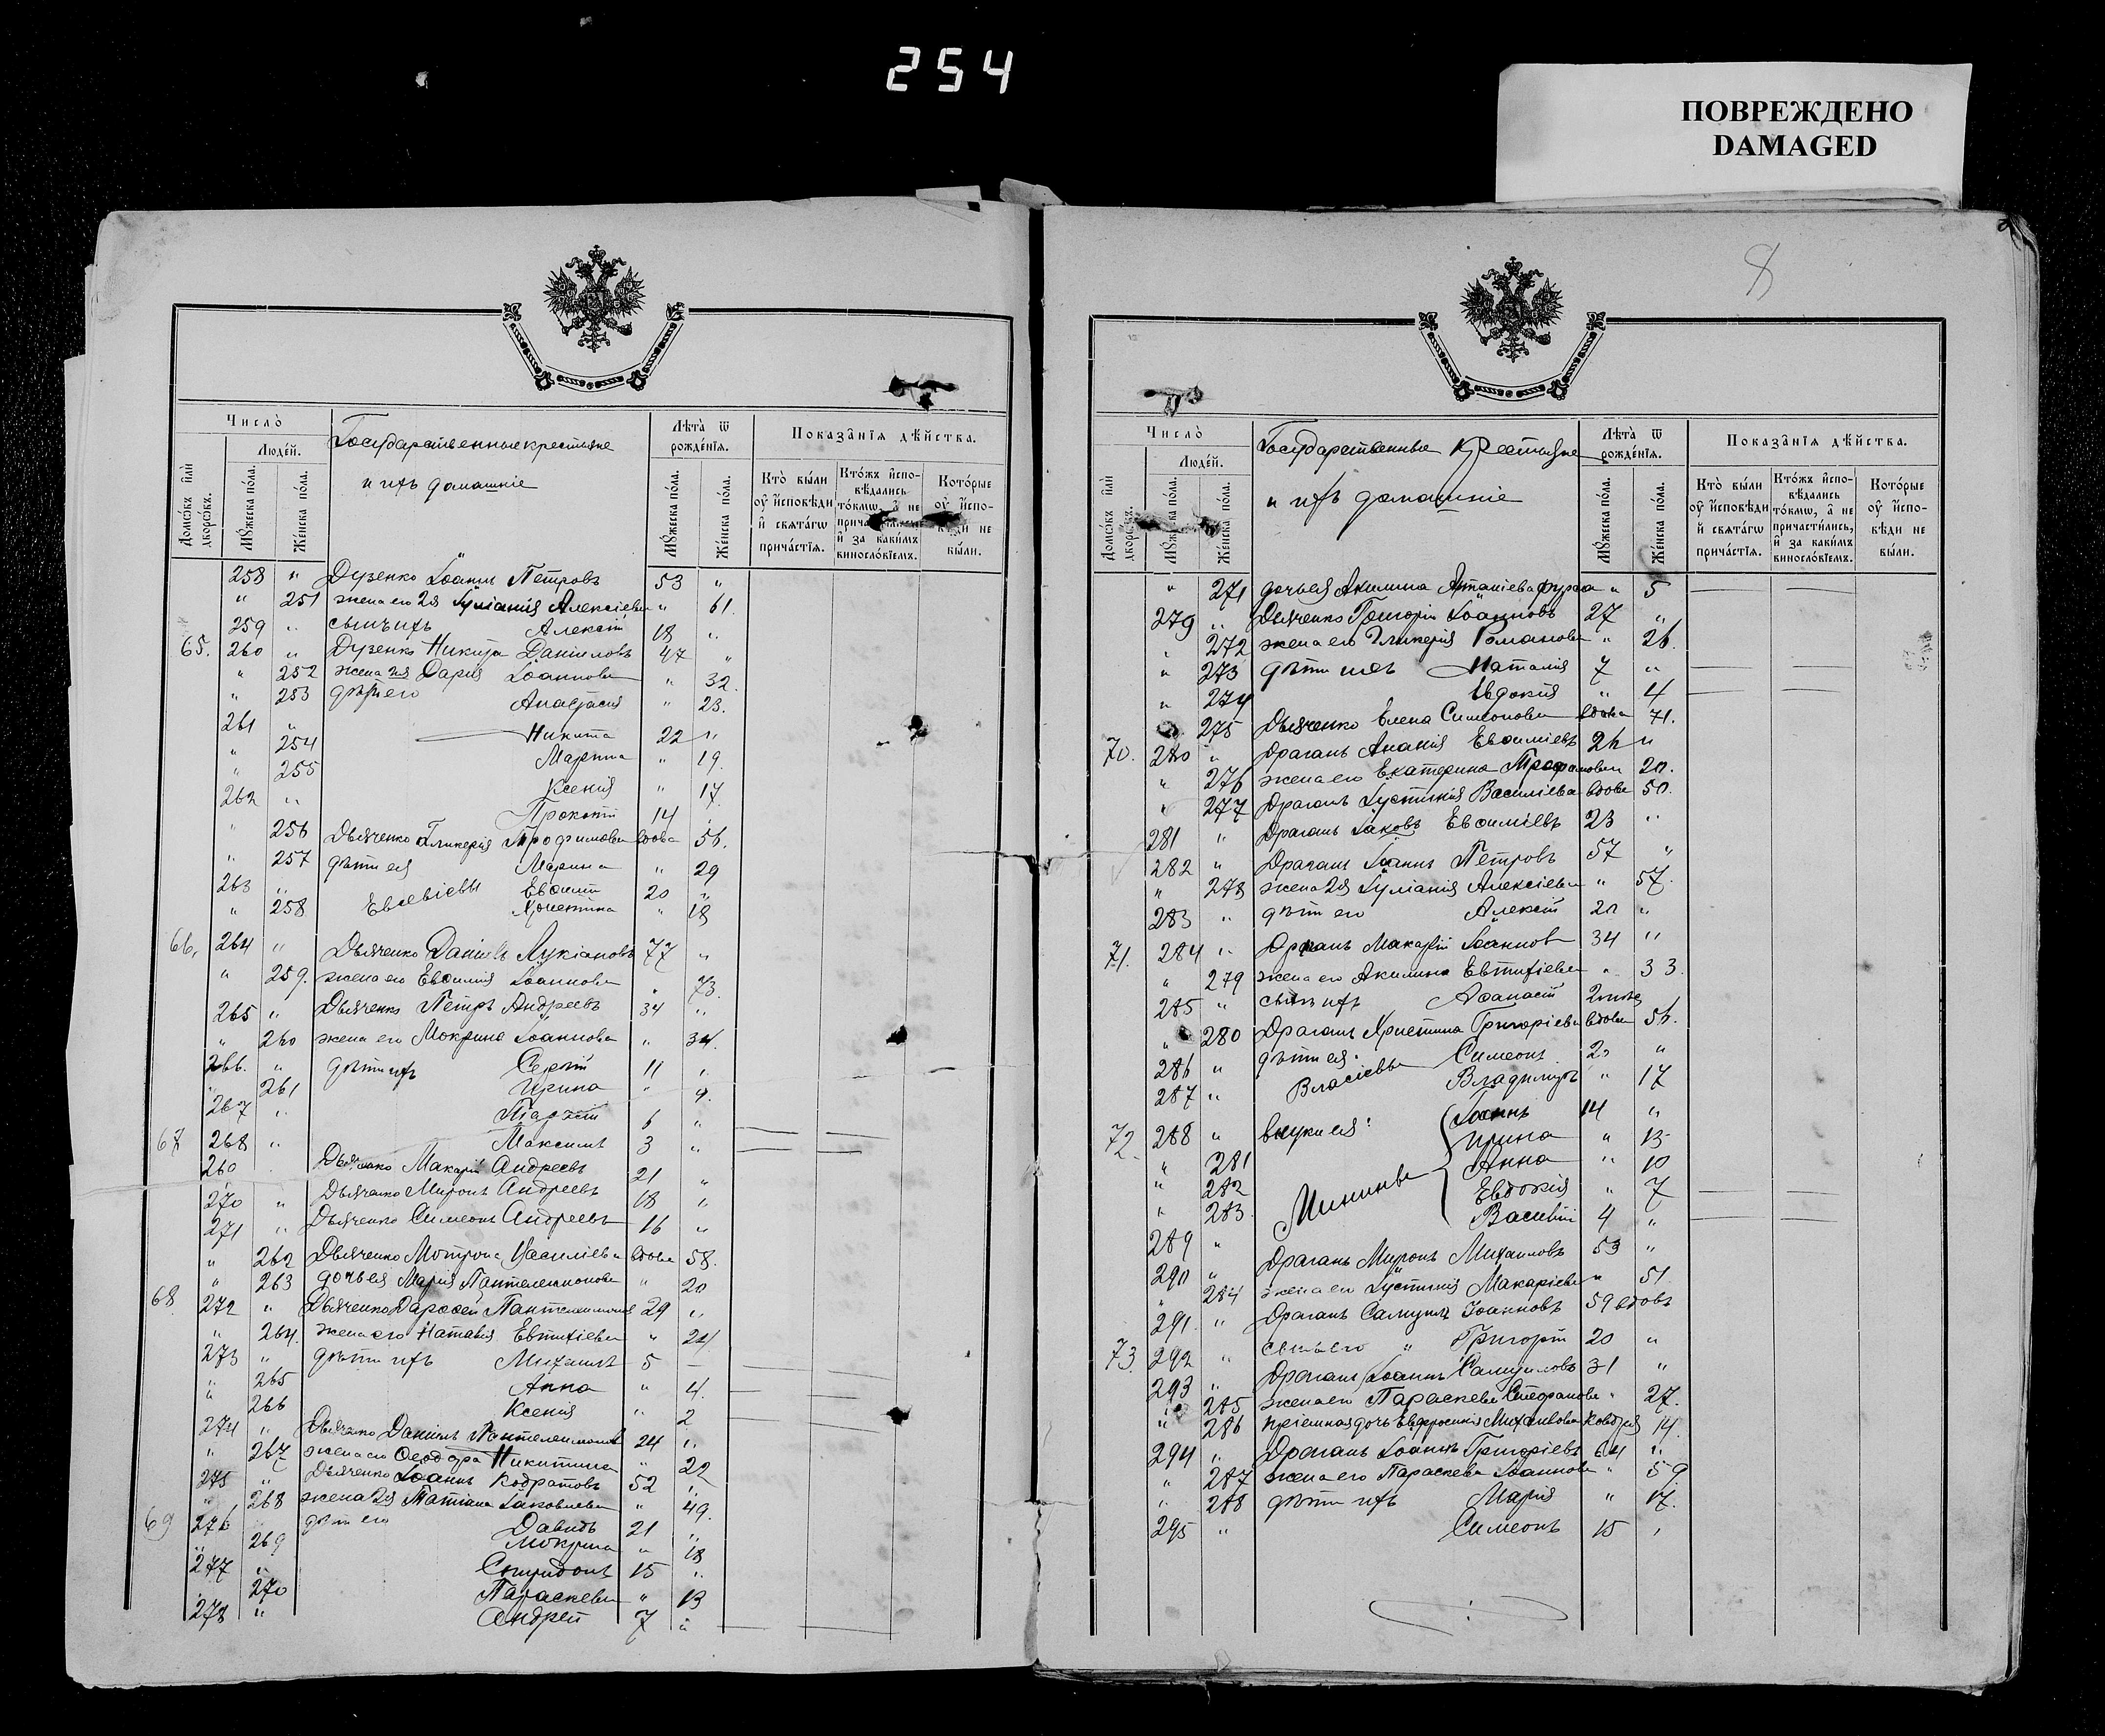 254
ПОВРЕЖДЕНО
DAMAGED
Число̀
Людéй.
Домѡ́въ и҆лѝ дворѡ́въ.
Мꙋ́жеска по́ла.
Же́нска по́ла.
Государственные крестьяне
и ихъ домашніе
Лѣ́та ѿ рожде́нїѧ.
Мꙋ́жеска по́ла.
Же́нска по́ла.
Показа̑нїѧ дѣ́йства.
Кто̀ бы́ли ᲂу҆ и҆сповѣ́ди и҆ свѧта́гѡ прича́стїѧ.
Кто́жъ и҆спо-вѣ́дались то́кмѡ, а҆ не и҆ за каки́мъ виносло́вїемъ.
Кото́рые ᲂу҆ и҆спо-вѣ́ди не бы́ли.
258 " Дузенко Іоаннъ Петровъ 53 "
" 251 жена его 2я Іуліанія Алексіева " 61.
259 " сынъ ихъ Алексій 18 "
65. 260 " Дузенко Никита Даніиловъ 47 "
" 252 жена 2я Дарія Іоаннова " 32.
" 253 дѣти его Анастасія " 23.
261 " Никита 22 "
" 254 Марѳа " 19.
" 255 Ксенія " 17
262 " Прокопій 14 "
" 256 Дьяченко Гликерія Трофимова вдова 56.
" 257 дѣти ея Марина " 29
263 " Евсевіевы Евѳимій 20 "
" 258 Христина " 18
66. 264 " Дьяченко Даніилъ Лукіановъ 77 "
" 259. жена его Евѳимія Іоаннова " 73.
265 " Дьяченко Петръ Андреевъ 34 "
" 260 жена его Мокрина Іоаннова " 34.
266. " дѣти ихъ Сергій 11 "
" 261 Ирина " 9.
267 " 6 "
67 268 " Максимъ 3 "
260 Дьяченко Макарій Андреевъ 21 "
270 " Дьяченко Миронъ Андреевъ 18 "
271 " Дьяченко Симеонъ Андреевъ 16 "
" 262 Дьяченко Мотрона Василіева вдова 58.
" 263 дочь ея Марія Пантелеимонова " 20
68. 272 " Дьяченко Дороѳей Пантелеимоновъ 29 "
" 264. жена его Наталія Евтихіева " 24
273 " дѣти ихъ Михаилъ 5 –
" 265 Анна " 4.
" 266 Ксенія " 2
274 " Дьяченко Даніилъ Пантелеимоновъ 24 "
" 267 жена его Ѳеодора Никитина " 22
275 " Дьяченко Іоаннъ Кодратовъ 52 "
" 268 жена 2я Татіана Іаковлева " 49.
69 276 дѣти его Давидъ 21 "
" 269 Мокрина " 18
277 " Спиридонъ 15 "
270 Параскева " 13
278 " Андрей 7 "
8
Число̀
Людéй.
Домѡ́въ и҆лѝ дворѡ́въ.
Мꙋ́жеска по́ла.
Же́нска по́ла.
Государственные крестьяне
и ихъ домашніе
Лѣ́та ѿ рожде́нїѧ.
Мꙋ́жеска по́ла.
Же́нска по́ла.
Показа̑нїѧ дѣ́йства.
Кто̀ бы́ли ᲂу҆ и҆сповѣ́ди и҆ свѧта́гѡ прича́стїѧ.
Кто́жъ и҆спо-вѣ́дались то́кмѡ, а҆ не причасти́лись, и҆ за каки́мъ виносло́вїемъ.
Кото́рые ᲂу҆ и҆спо-вѣ́ди не бы́ли.
" 271 дочь ея Акилина " 5
279 " Дьяченко Григорій Іоанновъ 27 "
" 272 жена его Гликерія Романова " 26.
" 273 дѣти ихъ Наталія 7 "
" 274 Евдокія " 4
275 Дьяченко Елена Симеонова вдова 71.
70. 280 " Драганъ Ананія Евѳиміевъ 26 "
" 276 жена его Екатерина 20.
" 277 Драганъ Іустинія Василіева вдова 50.
281 " Драганъ Іаковъ Евѳиміевъ 23 "
282 " Драганъ Іоаннъ Петровъ 57 "
" 278 жена 2я Іуліанія Алексіева " 57.
283 " дѣти его Алексій 20 "
71. 284 " Драганъ Макарій Іоанновъ 34 "
" 279 жена его Акилина Евтихіева " 33.
285 " сынъ ихъ Аѳанасій
" 280 Драганъ Христина Григоріева вдова 56.
286 " дѣти ея: Симеонъ 20 "
287 " Власіевы Владимиръ " 17
72. 288 " внуки ея: Іоаннъ 14 "
Ирина " 13
" 281 Анна " 10
" 282 Минины Евдокія " 7
" 283 Василій 4 "
289 " Драганъ Миронъ Михаиловъ 53 "
290 " жена его Іустинія Макаріева " 51
" 284 Драганъ Самуилъ Іоанновъ 59 вдовъ
291 " сынъ его " Григорій 20 "
73 292 " Драганъ Іоаннъ Самуиловъ 31 "
293 " жена его Параскева Стефанова " 27.
" 285
" 286 пріемная дочь Евфросинія Михаилова 14.
294 " Драганъ Іоаннъ Григоріевъ 64 "
" 287 жена его Параскева Іоаннова " 59.
" 288 дѣти ихъ Марія " 17.
295 " Симеонъ 15 "